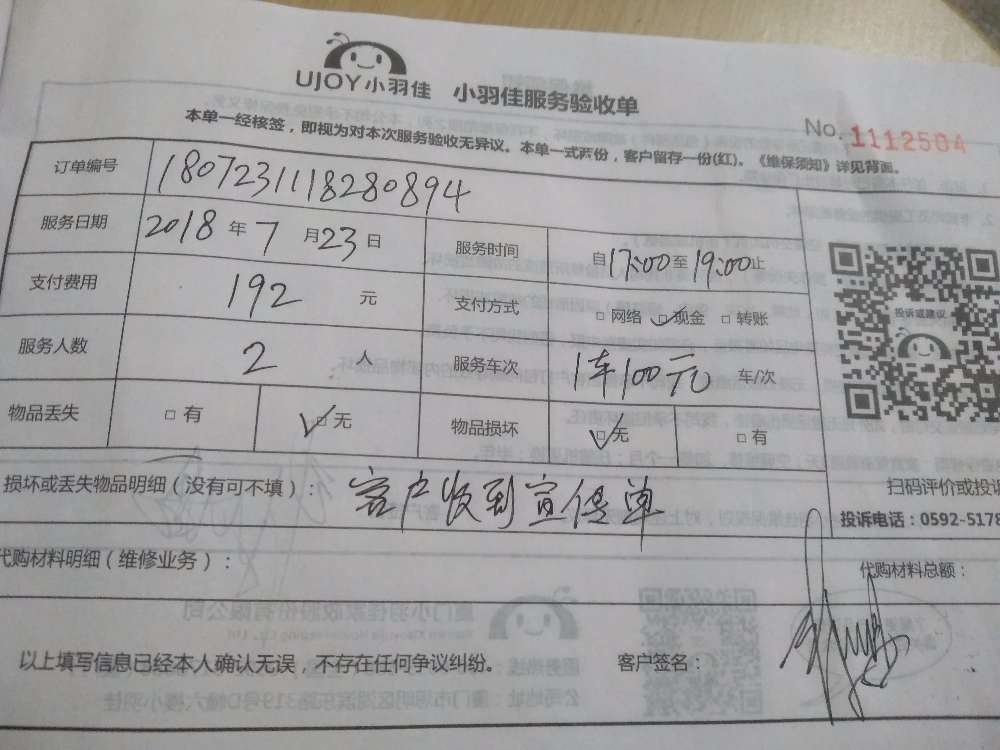 UJOY小羽佳 小羽佳服务验收单
No. 1112504
本单一经核签，即视为对本次服务验收无异议。本单一式两份，客户留存一份(红)。《维保须知》详见背面。
订单编号 1807231118280894
服务日期 2018 年 7 月 23 日 服务时间 自17:00至19:00止
支付费用 192 元 支付方式 □ 网络 ☑ 现金 □ 转账
服务人数 2 人 服务车次 1车100元 车/次
物品丢失 □ 有 ☑ 无 物品损坏 ☑ 无 □ 有
投诉或建议
扫码评价或投诉
投诉电话：0592-5178
损坏或丢失物品明细（没有可不填）： 客户收到宣传单
代购材料明细（维修业务）：
代购材料总额：
以上填写信息已经本人确认无误，不存在任何争议纠纷。 客户签名：